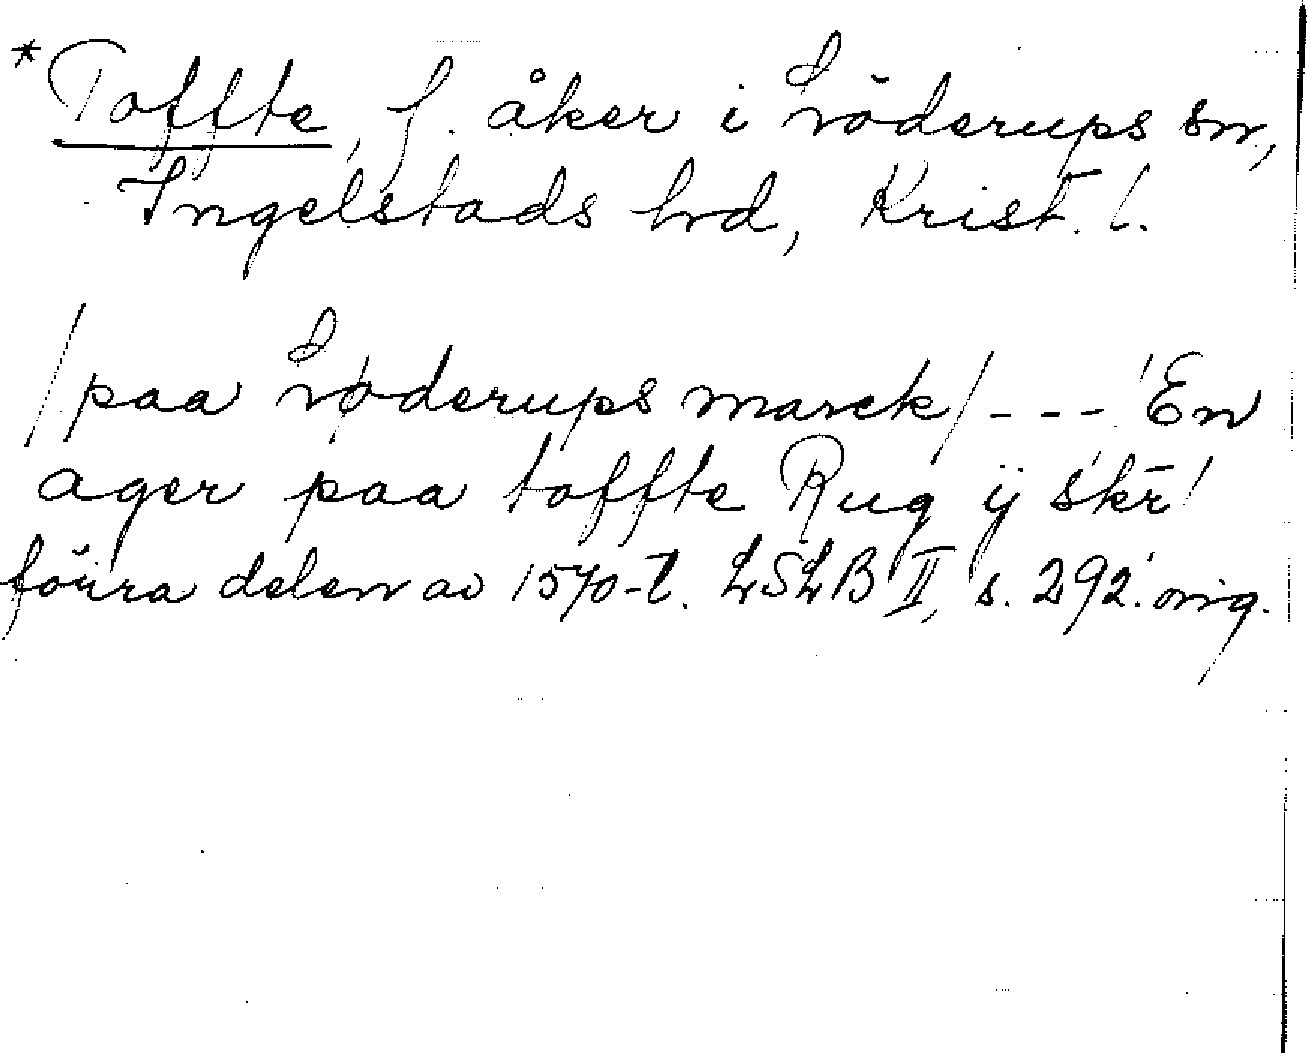 *Toffte, f. åker i Löderups sn,
Ingelstads hd, Krist. l.
/paa Løderups marck/ - - - 'En
ager paa toffte Rug ij skr̄'
förra delen av 1570-t. LSLB II, s. 292. orig.